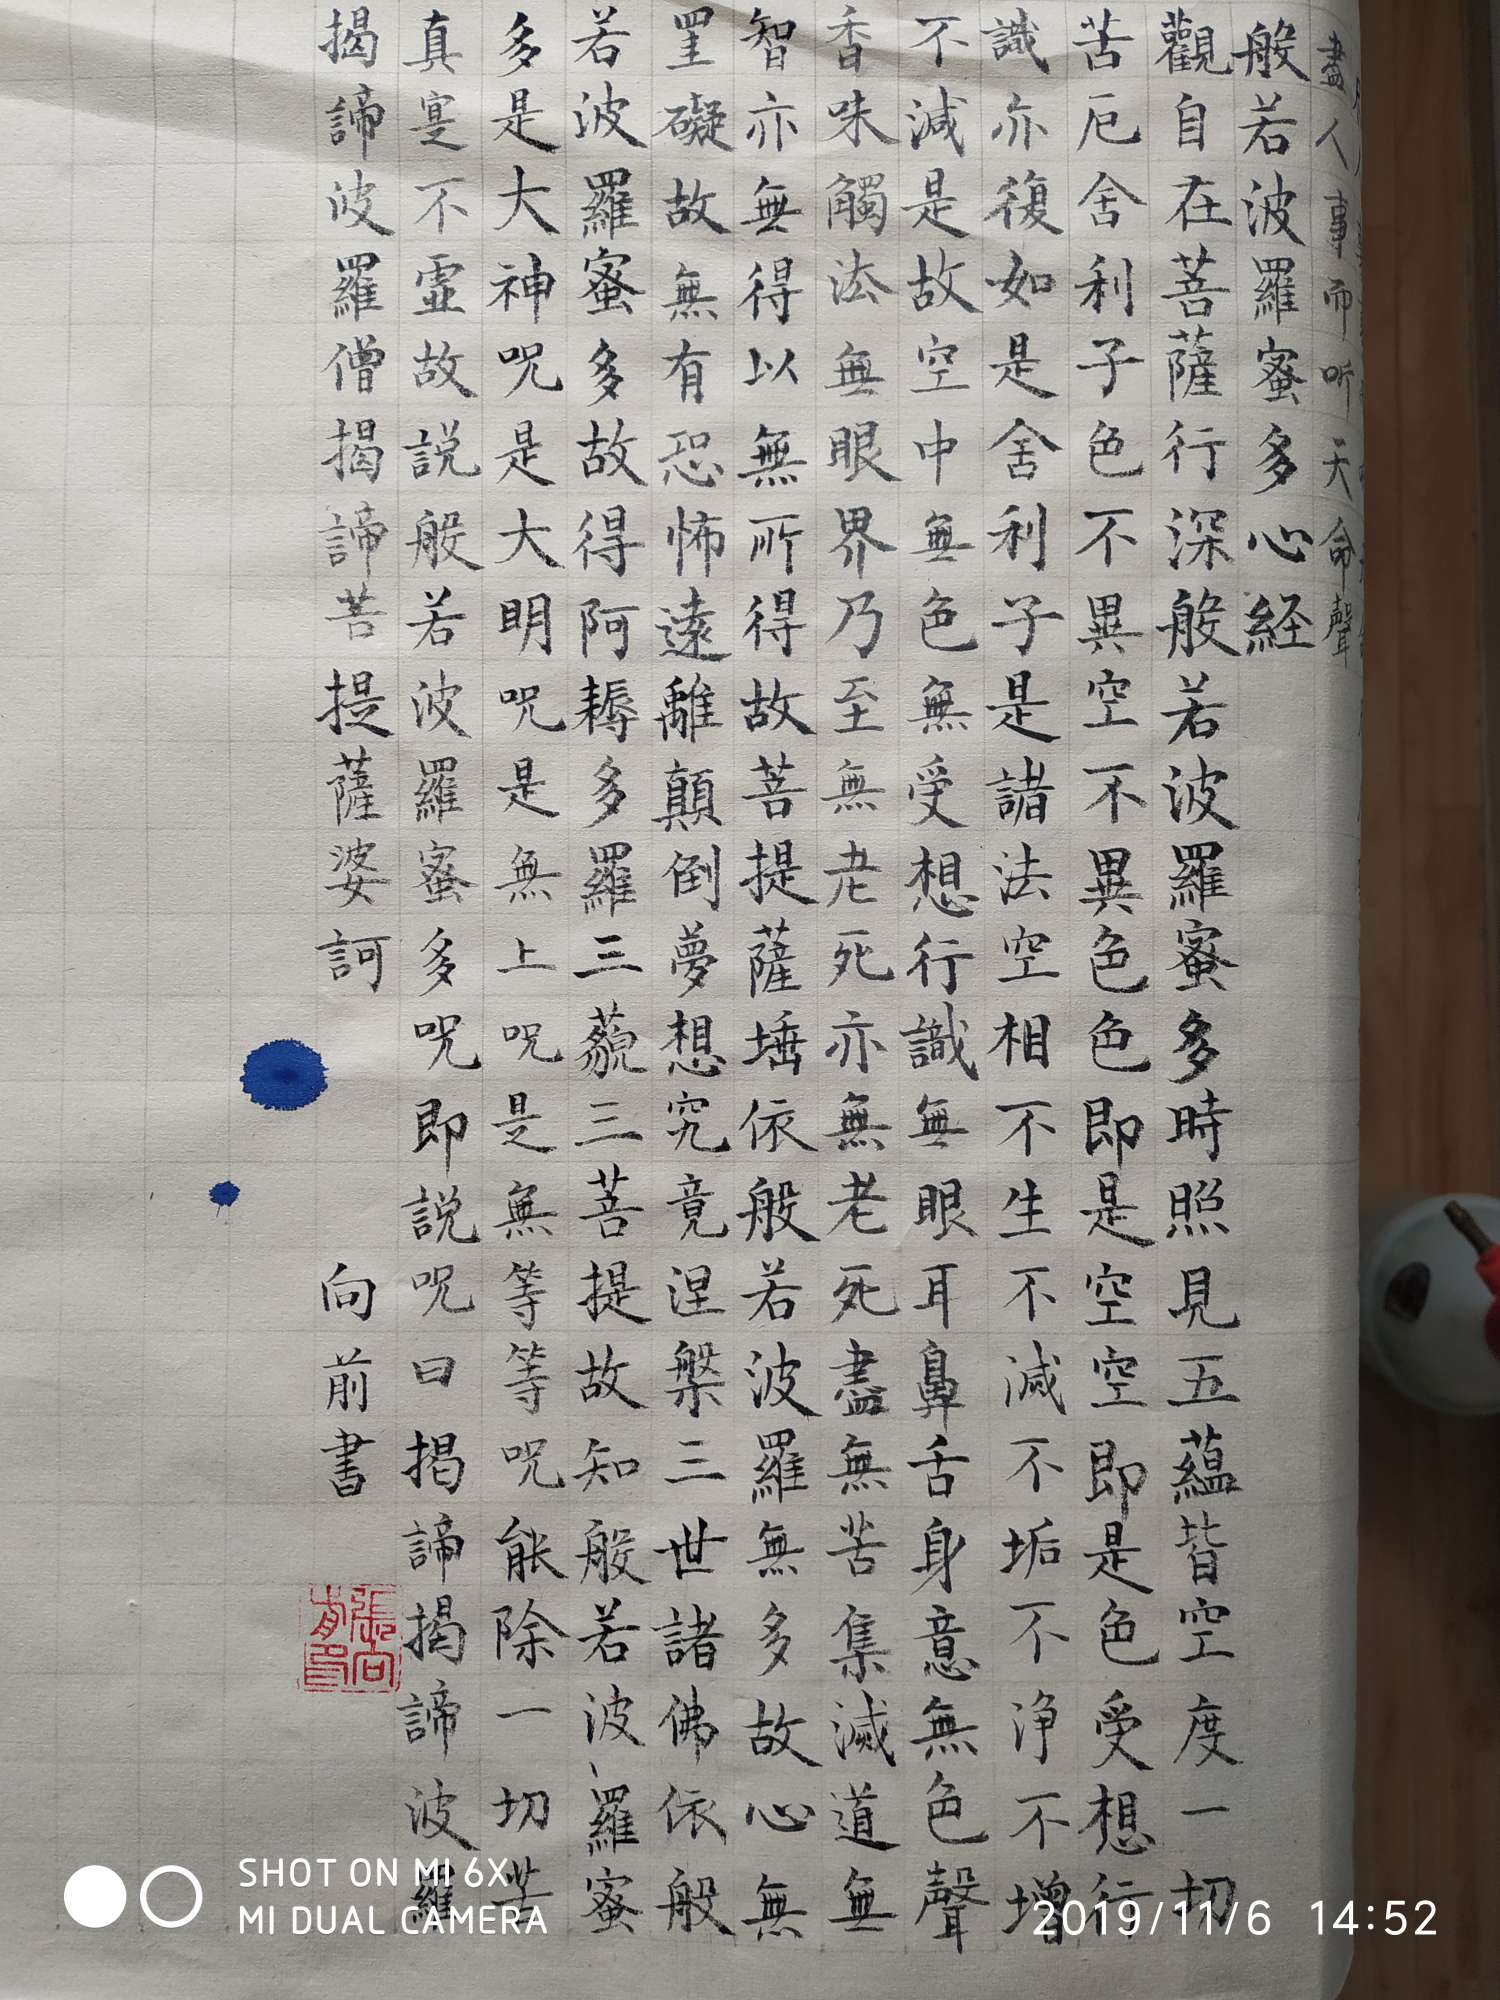 盡人事而听天命聲
般若波羅蜜多心経
觀自在菩薩行深般若波羅蜜多時照見五蘊皆空度一切
苦厄舍利子色不異空不異色色即是空空即是色受想行
識亦復如是舍利子是諸法空相不生不減不垢不净不增
不減是故空中無色無受想行識無眼耳鼻舌身意無色聲
香味觸法無眼界乃至無老死亦無老死盡無苦集滅道無
智亦無得以無所得故菩提薩埵依般若波羅無多故心無
罣礙故無有恐怖遠離顛倒夢想究竟涅槃三世諸佛依般
若波羅蜜多故得阿耨多羅三藐三菩提故知般若波羅蜜
多是大神呪是大明呪是無上呪是無等等呪能除一切苦
真寔不虛故説般若波羅蜜多呪即説呪曰揭諦揭諦波羅
揭諦波羅僧揭諦菩提薩婆訶 向前書
SHOT ON MI 6X
MI DUAL CAMERA
2019/11/6 14:52